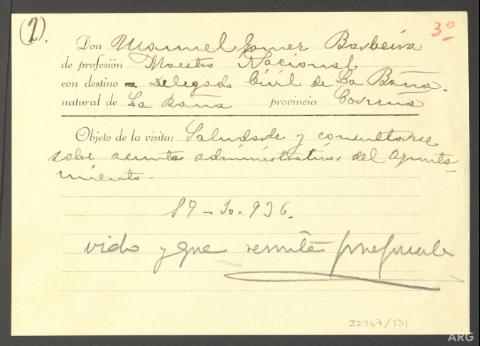 (2)
3º
Don Manuel Gomez Barbeira
de profesión Maestro Nacional.
con destino Delegado Civil de La Baña.
natural de La Bana provincia Coruña
Objeto de la visita: Saludarle y consultarle
sobre asuntos administrativos del Ayunta-
miento.
19-10-936.
vido y que remita
32457/131
ARG